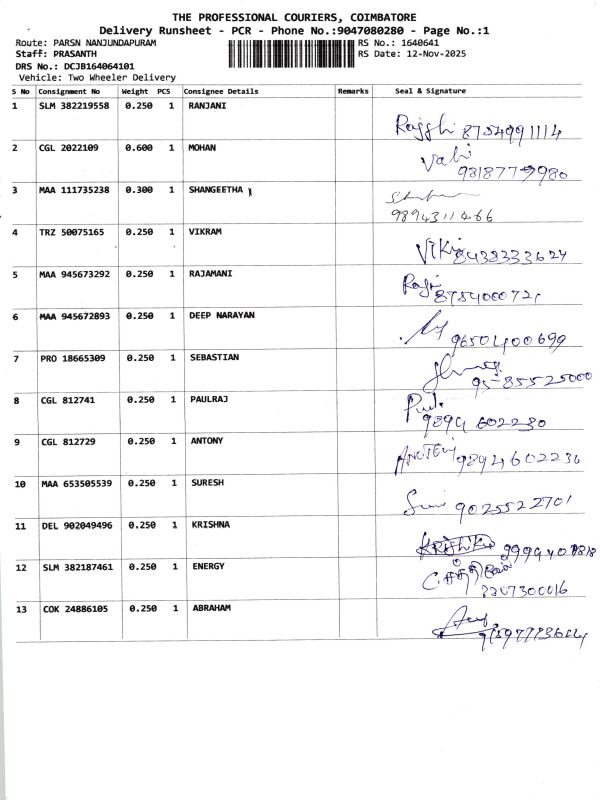 THE PROFESSIONAL COURIERS, COIMBATORE
Delivery Runsheet - PCR - Phone No.:9047080280 - Page No.:1
Route: PARSN NANJUNDAPURAM RS No.: 1640641
Staff: PRASANTH RS Date: 12-Nov-2025
DRS No.: DCJB164064101
Vehicle: Two Wheeler Delivery
S No Consignment No Weight PCS Consignee Details Remarks Seal & Signature
1 SLM 382219558 0.250 1 RANJANI
8754991114
2 CGL 2022109 0.600 1 MOHAN
3 MAA 111735238 0.300 1 SHANGEETHA
4 TRZ 50075165 0.250 1 VIKRAM
8438333624
5 MAA 945673292 0.250 1 RAJAMANI
6 MAA 945672893 0.250 1 DEEP NARAYAN
9650400699
7 PRO 18665309 0.250 1 SEBASTIAN
8 CGL 812741 0.250 1 PAULRAJ
Paul. 9894602230
9 CGL 812729 0.250 1 ANTONY
9894602230
10 MAA 653505539 0.250 1 SURESH
9025522701
11 DEL 902049496 0.250 1 KRISHNA
12 SLM 382187461 0.250 1 ENERGY
13 COK 24886105 0.250 1 ABRAHAM